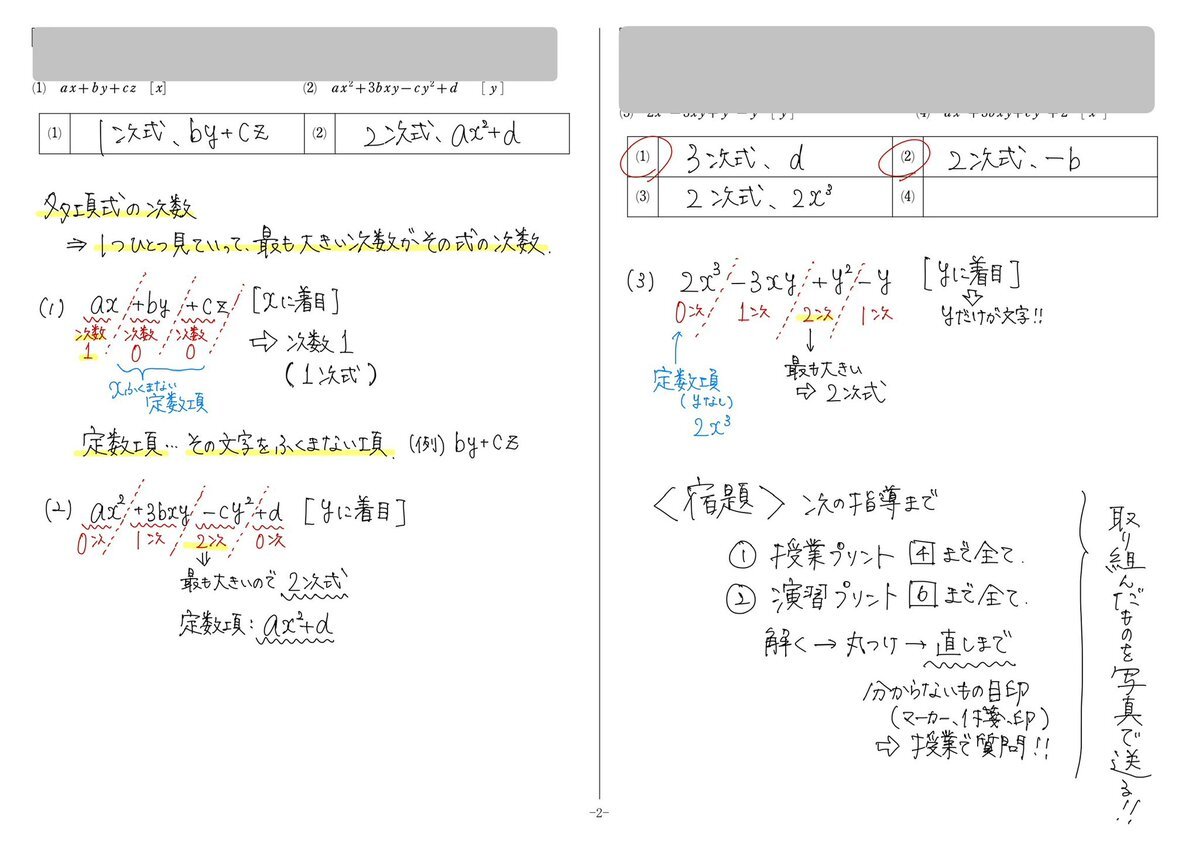 (1) ax+by+cz [x] (2) ax²+3bxy−cy²+d [y]
(1) 1次式、by+cz (2) 2次式、ax²+d
多項式の次数
⇒ 1つひとつ見ていって、最も大きい次数がその式の次数.
(1) ax+by+cz [xに着目]
次数 次数 次数
1 0 0
⇨ 次数1
(1次式)
xふくまない
定数項
定数項… その文字をふくまない項. (例) by+cz
(2) ax²+3bxy−cy²+d [yに着目]
0次 1次 2次 0次
↓
最も大きいので 2次式
定数項: ax²+d
(1) 3次式、d (2) 2次式、−b
(3) 2次式、2x³ (4)
(3) 2x³−3xy+y²−y [yに着目]
⇩
yだけが文字!!
0次 1次 2次 1次
↑
定数項
(yなし)
2x³
↓
最も大きい
⇨ 2次式
<宿題> 次の指導まで
① 授業プリント 4 まで全て.
② 演習プリント 6 まで全て.
解く → 丸つけ → 直しまで
分からないもの目印
(マーカー、付箋、印)
⇨ 授業で質問!!
取り組んだものを写真で送る!!
-2-